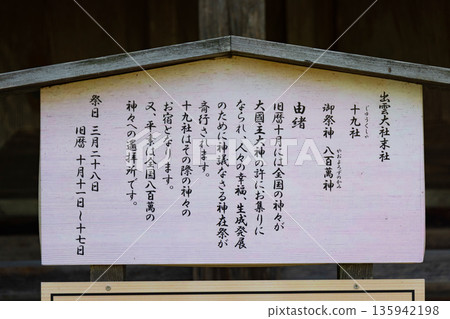 出雲大社末社
じゅうくしゃ
十九社
やおよろずのかみ
御祭神 八百萬神
由緒
旧暦十月には全国の神々が
大國主大神の許にお集りに
なられ、人々の幸福、生成発展
のために神議なさる神在祭が
斎行されます。
十九社はその際の神々の
お宿となります。
又、平常は全国八百萬の
神々への遥拝所です。
祭日 三月二十八日
旧暦 十月十一日～十七日
135942198